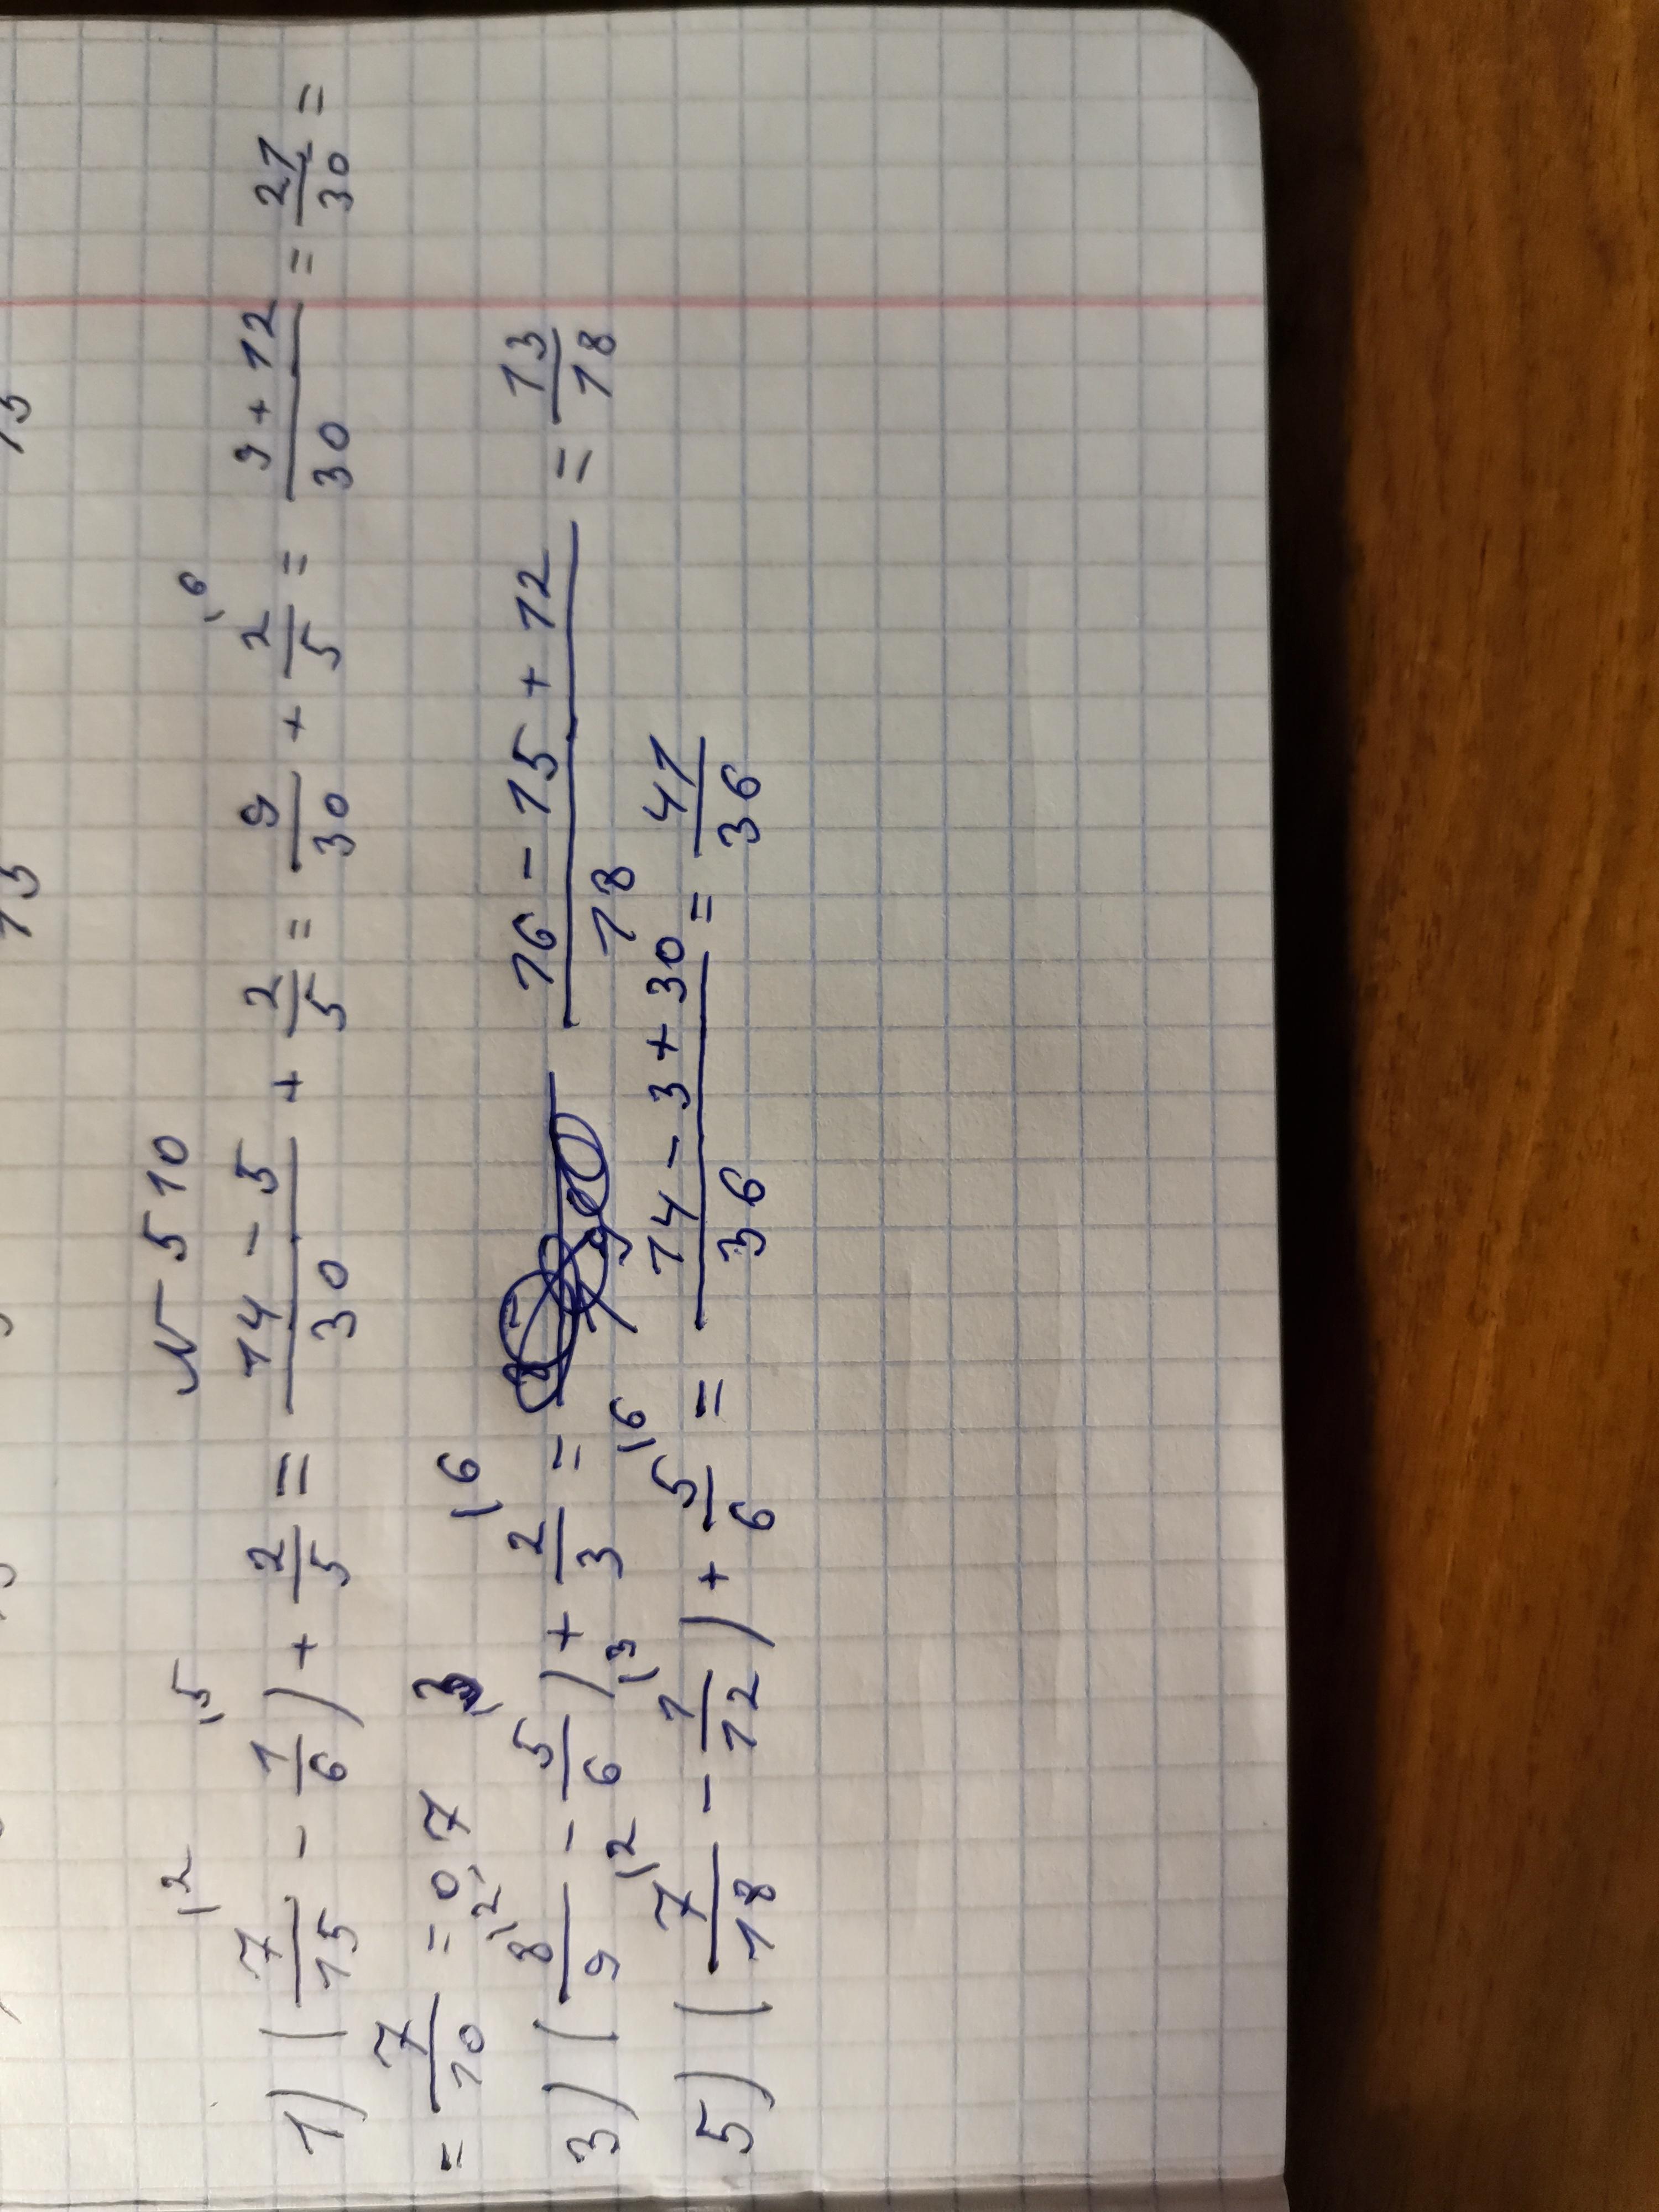 N 510
1) (7/15 \2 - 1/6 \5) + 2/5 = 14 - 5/30 + 2/5 = 9/30 + 2/5 \6 = 9 + 12/30 = 21/30 =
= 7/10 = 0,7
3) (8/9 \2 - 5/6 \3) + 2/3 \6 = 16 - 15 + 12/18 = 13/18
5) (7/18 \2 - 1/12 \3) + 5/6 \6 = 14 - 3 + 30/36 = 41/36